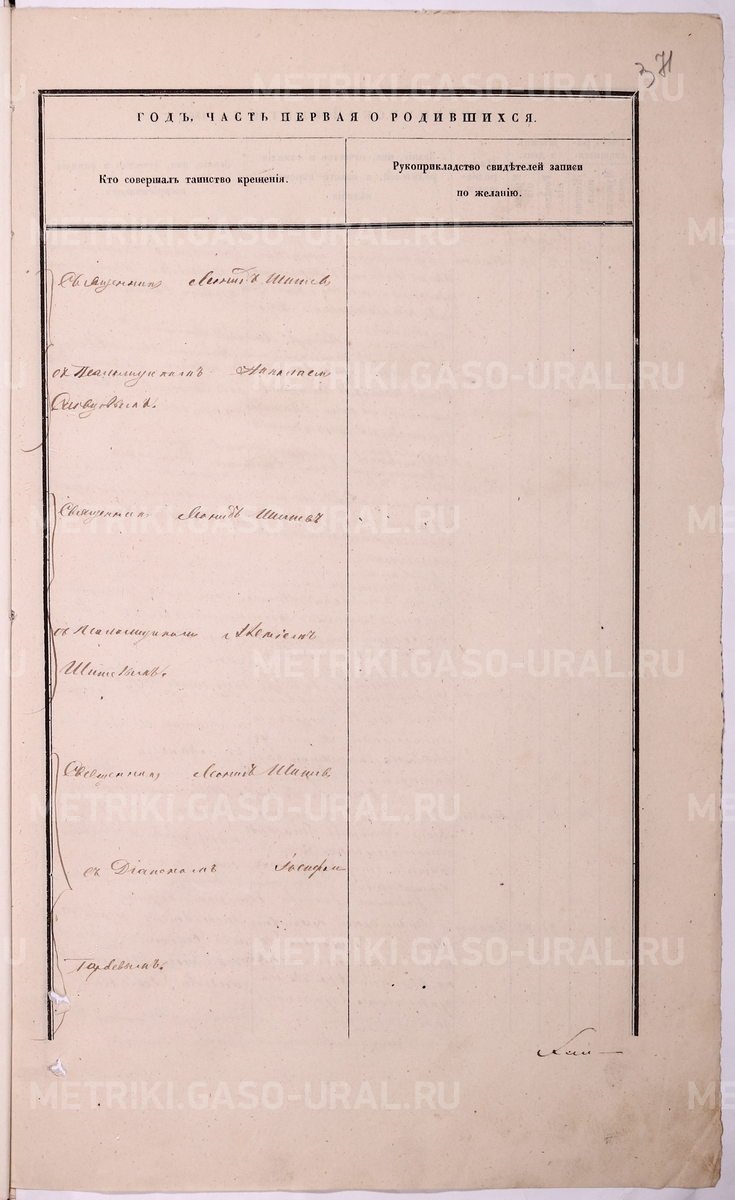 371
ГОДЪ, ЧАСТЬ ПЕРВАЯ О РОДИВШИХСЯ.
Кто совершалъ таинство крещенія.
Рукоприкладство свидѣтелей записи
по желанію.
Священникъ Леонидъ Шишевъ
съ Псаломщикомъ Николаем
Священникъ Леонидъ Шишевъ
съ Псаломщикомъ
Шишевымъ.
Священникъ Леонидъ Шишевъ
съ Діакономъ Іосифом
METRIKI.GASO-URAL.RU